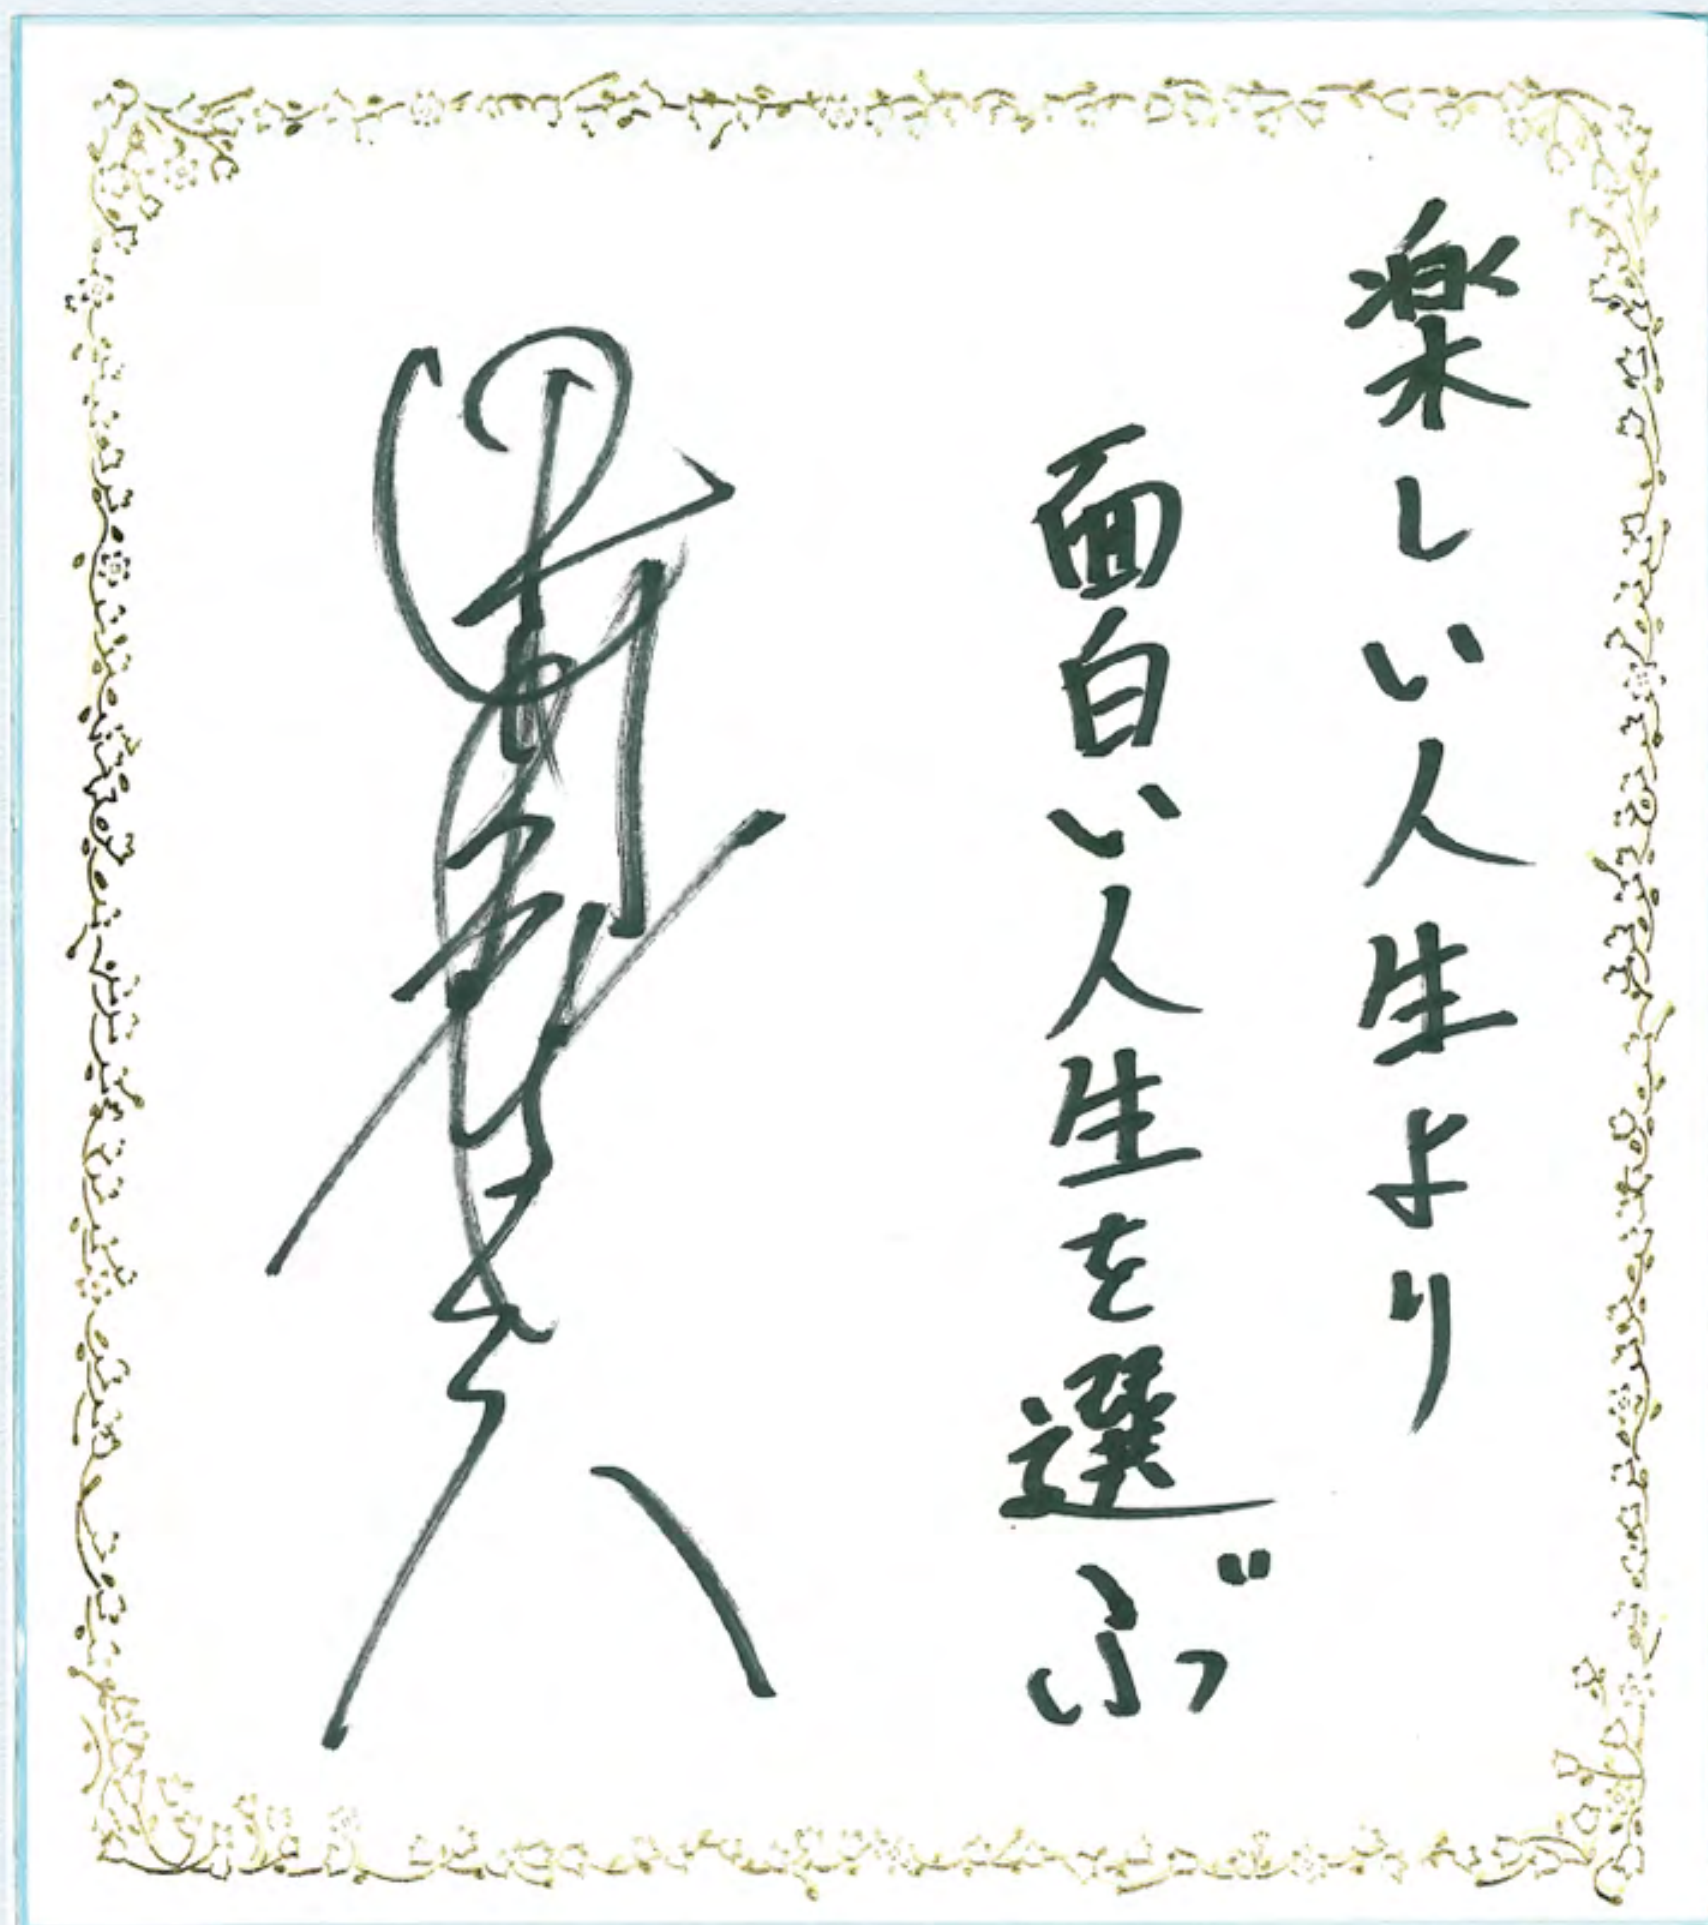 楽しい人生より
面白い人生を選ぶ